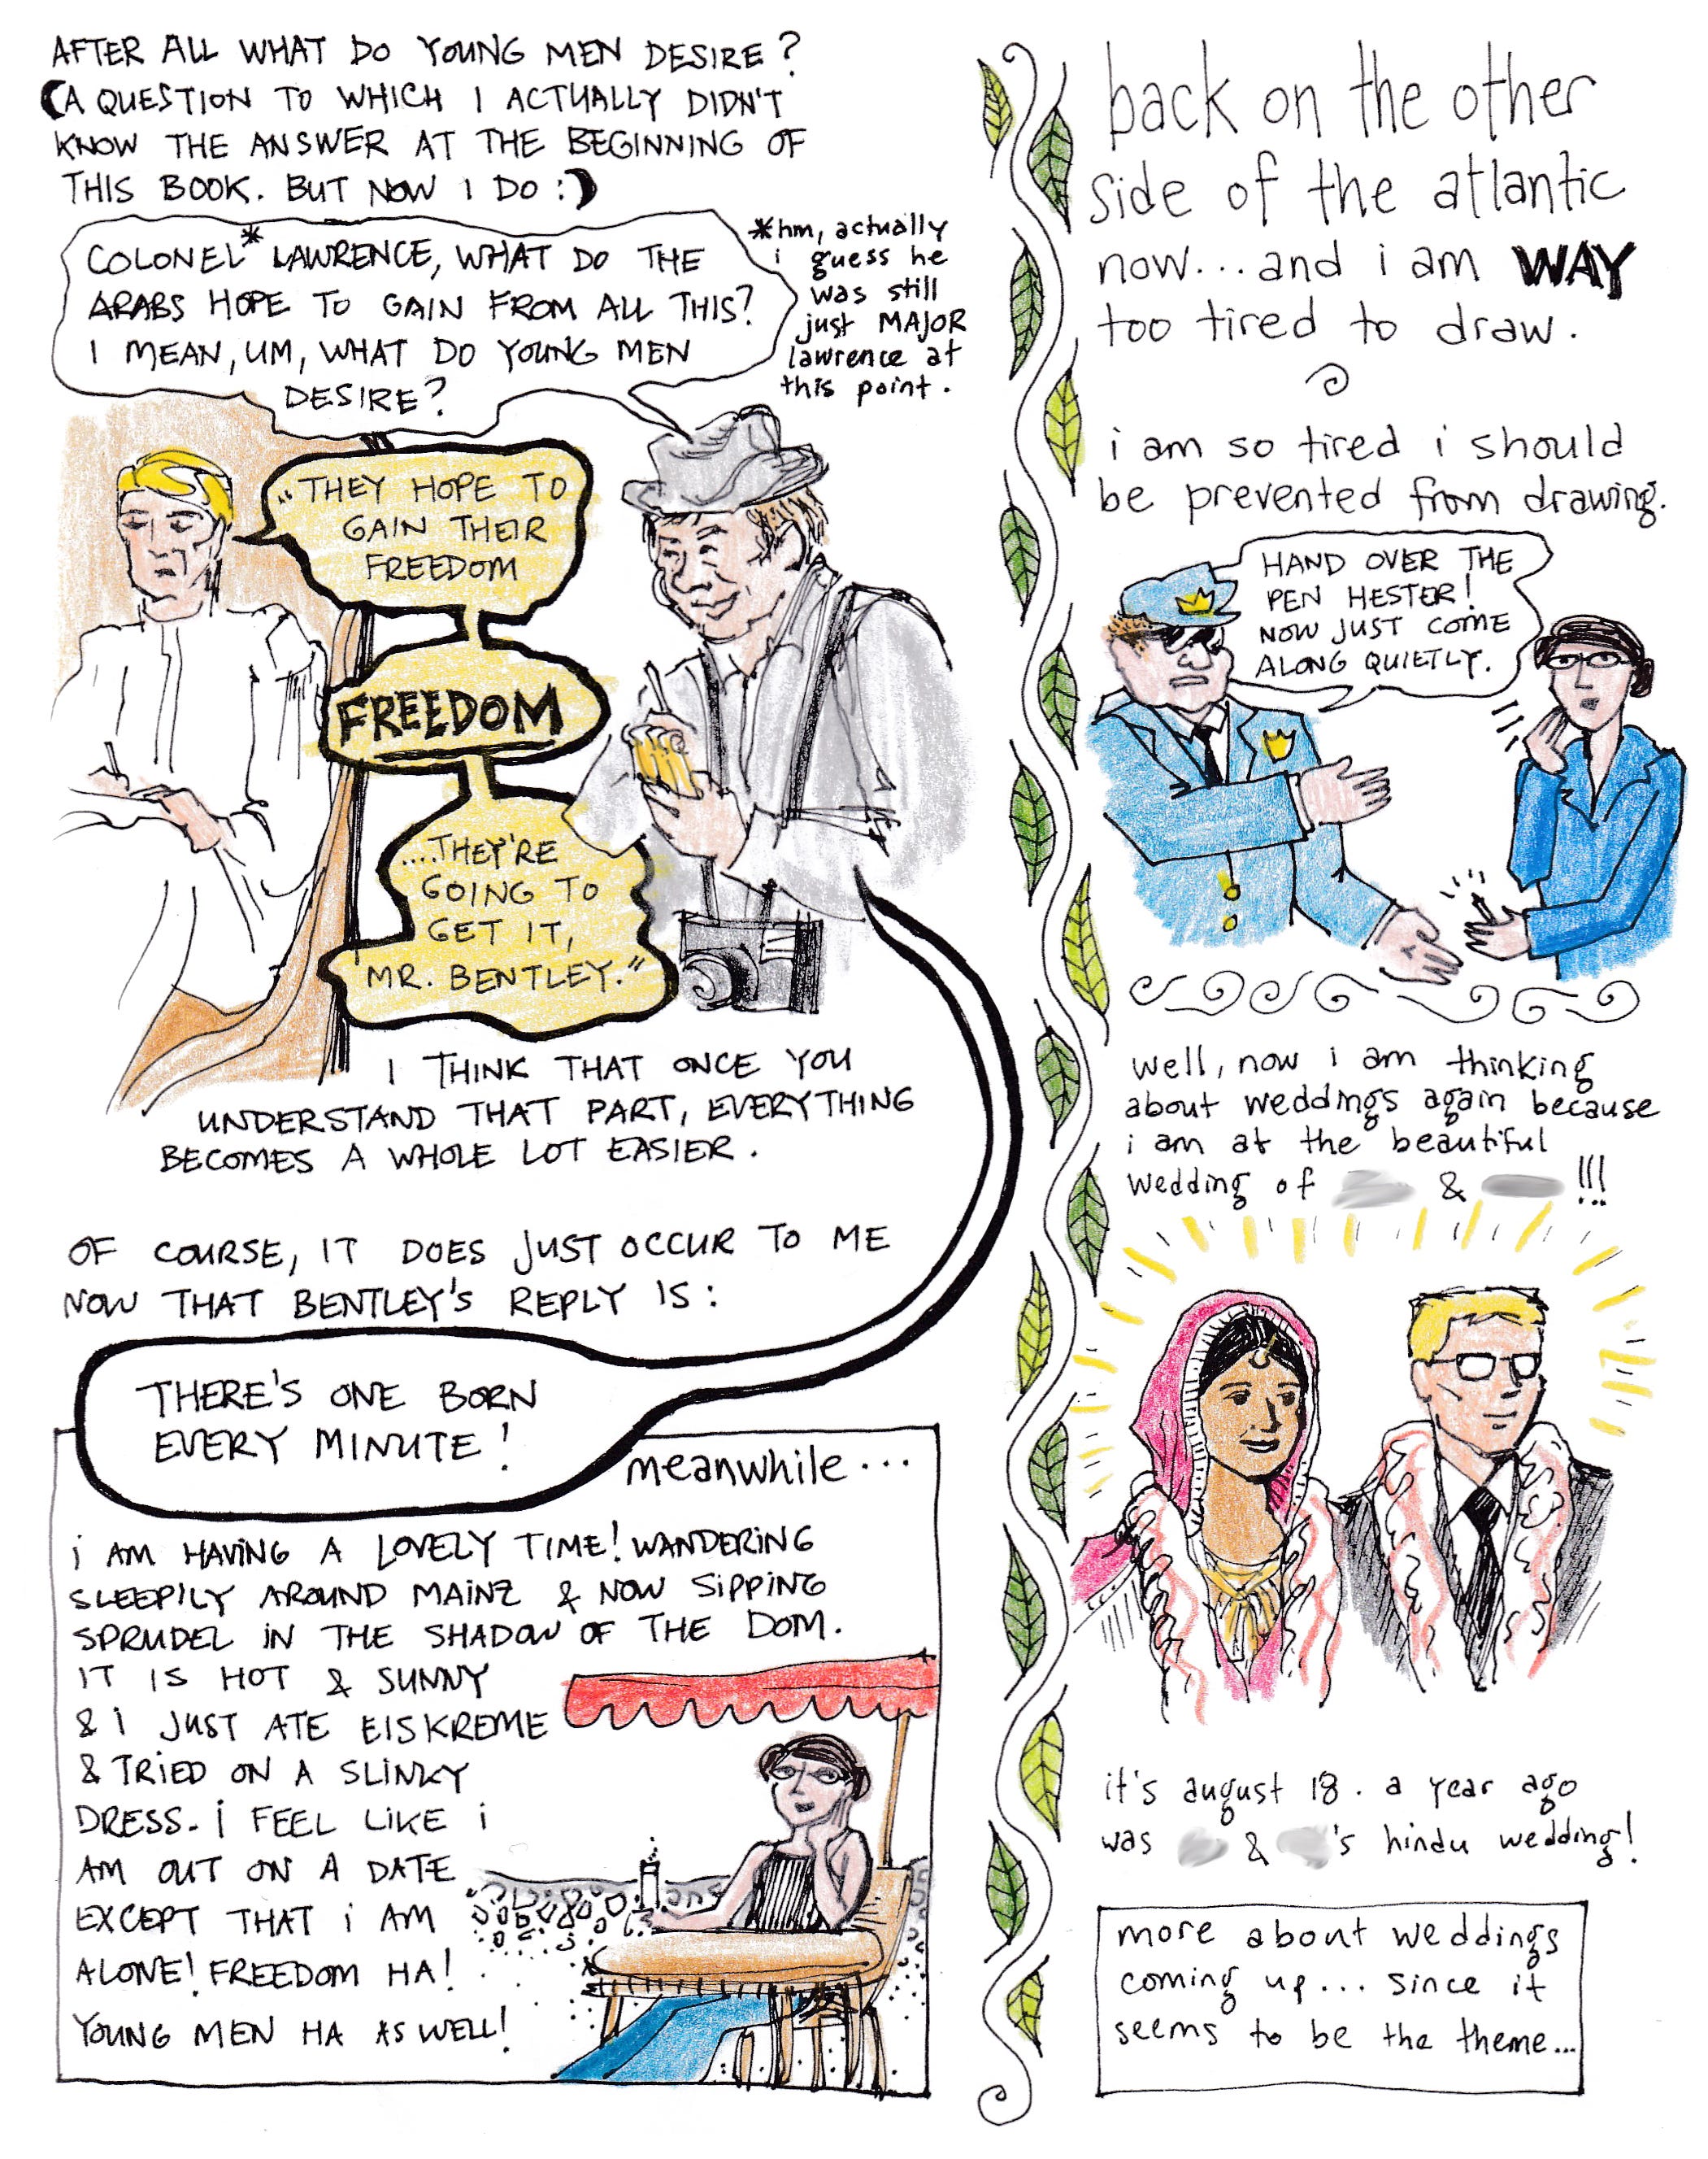 AFTER ALL WHAT DO YOUNG MEN DESIRE?
(A QUESTION TO WHICH I ACTUALLY DIDN'T
KNOW THE ANSWER AT THE BEGINNING OF
THIS BOOK. BUT NOW I DO :)
COLONEL* LAWRENCE, WHAT DO THE
ARABS HOPE TO GAIN FROM ALL THIS?
I MEAN, UM, WHAT DO YOUNG MEN
DESIRE?
*hm, actually
i guess he
was still
just MAJOR
lawrence at
this point.
"THEY HOPE TO
GAIN THEIR
FREEDOM
FREEDOM
....THEY'RE
GOING TO
GET IT,
MR. BENTLEY."
I THINK THAT ONCE YOU
UNDERSTAND THAT PART, EVERYTHING
BECOMES A WHOLE LOT EASIER.
OF COURSE, IT DOES JUST OCCUR TO ME
NOW THAT BENTLEY'S REPLY IS:
THERE'S ONE BORN
EVERY MINUTE!
meanwhile...
i AM HAVING A LOVELY TIME! WANDERING
SLEEPILY AROUND MAINZ & NOW SiPPING
SPRUDEL IN THE SHADOW OF THE DOM.
IT IS HOT & SUNNY
& I JUST ATE EISKREME
& TRIED ON A SLINKY
DRESS. i FEEL LIKE i
AM OUT ON A DATE
EXCEPT THAT i AM
ALONE! FREEDOM HA!
YOUNG MEN HA AS WELL!
back on the other
side of the atlantic
now... and i am WAY
too tired to draw.
i am so tired i should
be prevented from drawing.
HAND OVER THE
PEN HESTER!
NOW JUST COME
ALONG QUIETLY.
well, now i am thinking
about weddings again because
i am at the beautiful
wedding of & !!!
it's august 18. a year ago
was & 's hindu wedding!
more about weddings
coming up... since it
seems to be the theme...